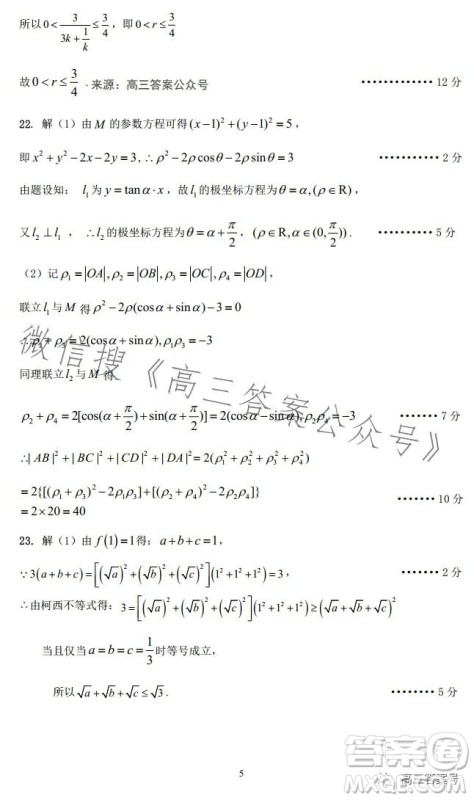 所以 0 < 3/(3k+1/k) ≤ 3/4，即 0 < r ≤ 3/4
故 0 < r ≤ 3/4 . 来源：高三答案公众号 ············ 12 分
22. 解（1）由 M 的参数方程可得 (x−1)²+(y−1)²=5，
即 x²+y²−2x−2y=3, ∴ρ²−2ρcosθ−2ρsinθ=3 ············ 2 分
由题设知：l₁为 y=tanα·x，故 l₁的极坐标方程为 θ=α,(ρ∈R)，
又 l₂⊥l₁ ，∴l₂的极坐标方程为 θ=α+π/2，(ρ∈R,α∈(0,π/2)). ·········· 5 分
（2）记 ρ₁=|OA|,ρ₂=|OB|,ρ₃=|OC|,ρ₄=|OD|,
联立 l₁与 M 得 ρ²−2ρ(cosα+sinα)−3=0
∴ρ₁+ρ₃=2(cosα+sinα),ρ₁ρ₃=−3
同理联立 l₂与 M 得
ρ₂+ρ₄=2[cos(α+π/2)+sin(α+π/2)]=2(cosα−sinα),ρ₂ρ₄=−3 ······· 7 分
∴|AB|²+|BC|²+|CD|²+|DA|²=2(ρ₁²+ρ₂²+ρ₃²+ρ₄²)
=2{[(ρ₁+ρ₃)²−2ρ₁ρ₃]+[(ρ₂+ρ₄)²−2ρ₂ρ₄]} ········ 10 分
=2×20=40
23. 解（1）由 f(1)=1得；a+b+c=1,
∵3(a+b+c)=[(√a)²+(√b)²+(√c)²](1²+1²+1²)=3， ······· 2 分
∴由柯西不等式得：3=[(√a)²+(√b)²+(√c)²](1²+1²+1²)≥(√a+√b+√c)²
当且仅当 a=b=c=1/3 时等号成立，
所以 √a+√b+√c≤√3. ········ 5 分
微信搜《高三答案公众号》
5
答案卷
高三答案号
MXQE.COM